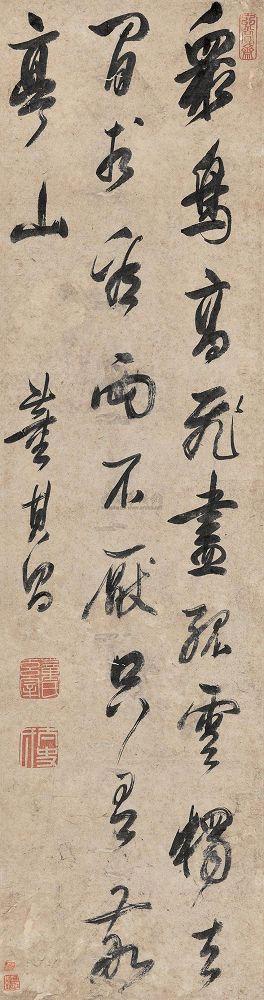 眾鳥高飛盡孤雲獨去
閒相看兩不厭只有敬
亭山
董其昌